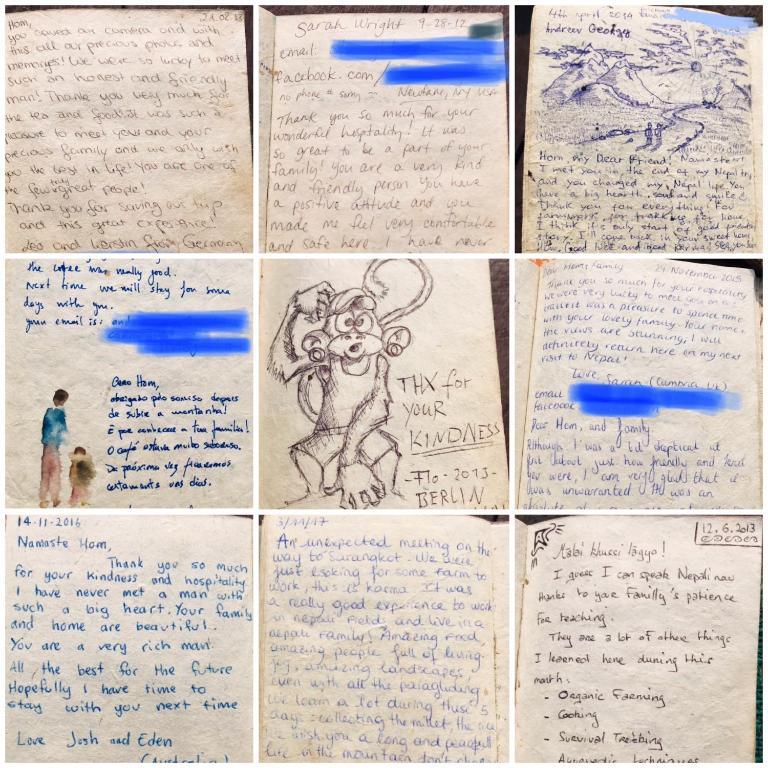 21.02.13
Hom,
you saved our camera and with
this all our precious photos and
memories! We were so lucky to meet
such an honest and friendly
man! Thank you very much for
the tea and food! It was such a
pleasure to meet you and your
precious family and we only wish
you the best in life! You are one of
the few really great people!
Thank you for saving our trip
and this great experience!
Leo and Kerstin from Germany
Sarah Wright 9-28-12
email:
facebook.com/
no phone # sorry
Newfane, NY USA
Thank you so much for your
wonderful hospitality! It was
so great to be a part of your
family! You are a very kind
and friendly person. You have
a positive attitude and you
made me feel very comfortable
and safe here. I have never
4th april 2014
Andreev Georgy
Hom, my Dear Friend! Namaste!
I met you in the end of my Nepal trip
and you changed my Nepal life. You
have a big heart, soul and smile!
Thank you for everything! For
familywork, for trekking, for home.
I think it's only start of good friends
story. I'll come back in your sweet home
Hom. Good luck and good karma. See you soon
the coffee was really good.
Next time we will stay for some
days with you.
your email is:
Caro Hom,
obrigado pelo sorriso depois
de subir a montanha!
E por conhecer a tua família!
O café estava muito saboroso.
Da próxima vez ficaremos
certamente uns dias.
THX for
YOUR
KINDNESS
-Flo-2013-
BERLIN
Dear Hom, family 24 November 2015
Thank you so much for your hospitality
we were very lucky to meet you on a
It was a pleasure to spend time
with your lovely family. Your home,
the views are stunning, I will
definitely return here on my next
visit to Nepal!
Love, Sarah (Cumbria, UK)
email
facebook
Dear Hom, and family.
Although I was a lil' skeptical at
first about just how friendly and kind
you were, I am very glad that it
was unwarranted. It was an
absolute
14-11-2016
Namaste Hom,
Thank you so much
for your kindness and hospitality
I have never met a man with
such a big heart. Your family
and home are beautiful.
You are a very rich man.
All the best for the future
Hopefully I have time to
stay with you next time
Love Josh and Eden
(Australia)
3/11/17
An unexpected meeting on the
way to Sarangkot. We were
just looking for some farm to
work, this is karma. It was
a really good experience to work
in nepali fields and live in a
nepali family! Amazing food,
amazing people full of living
joy, amazing landscapes,
even with all the paragliding.
We learn a lot during these 5
days: collecting the millet, the rice
We wish you a long and peacefull
life in the mountain don't
12.6.2013
Malai khussi lagyo!
I guess I can speak Nepali now
thanks to your familly's patience
for teaching.
They are a lot of other things
I learned here during this
month:
- Organic Farming
- Cooking
- Survival Trekking
- Ayurvedic techniques